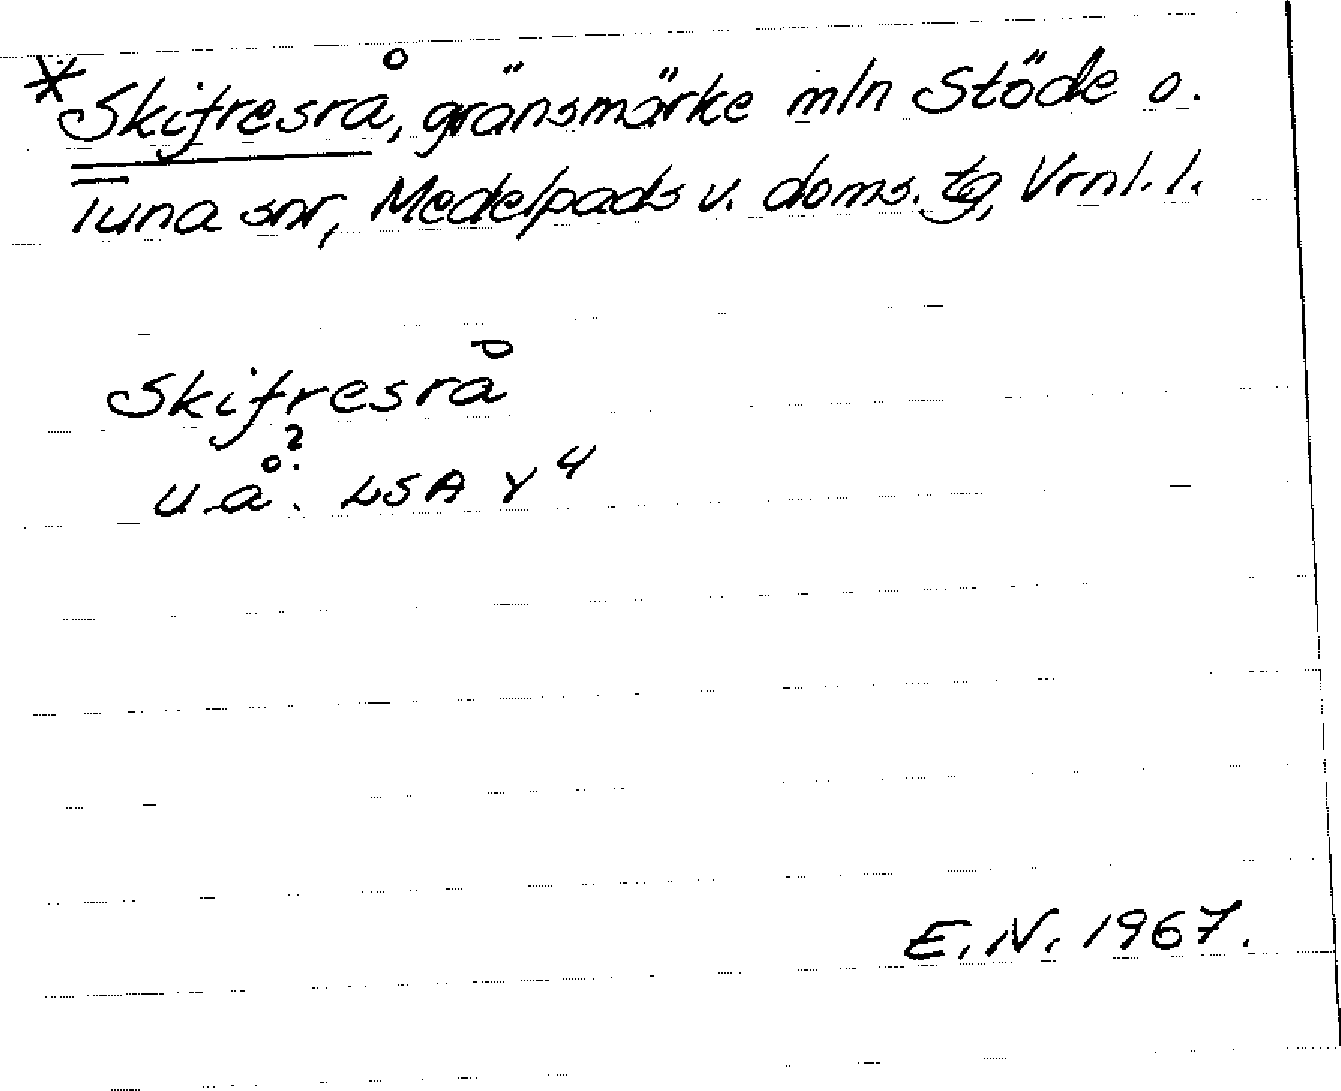 *Skifresrå, gränsmärke mln Stöde o.
Tuna snr, Medelpads v. doms. tg, Vrnl. l.
Skifresrå
u.å.? LSA Y 4
E.N. 1967.